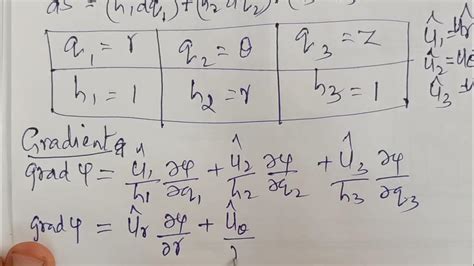 ds = (h₁dq₁)+(h₂
q₁ = r q₂ = θ q₃ = z
h₁ = 1 h₂ = r h₃ = 1
û₁ = ûr
û₂ =
û₃
Gradient
grad φ = û₁/h₁ ∂φ/∂q₁ + û₂/h₂ ∂φ/∂q₂ + û₃/h₃ ∂φ/∂q₃
grad φ = ûr ∂φ/∂r + ûθ